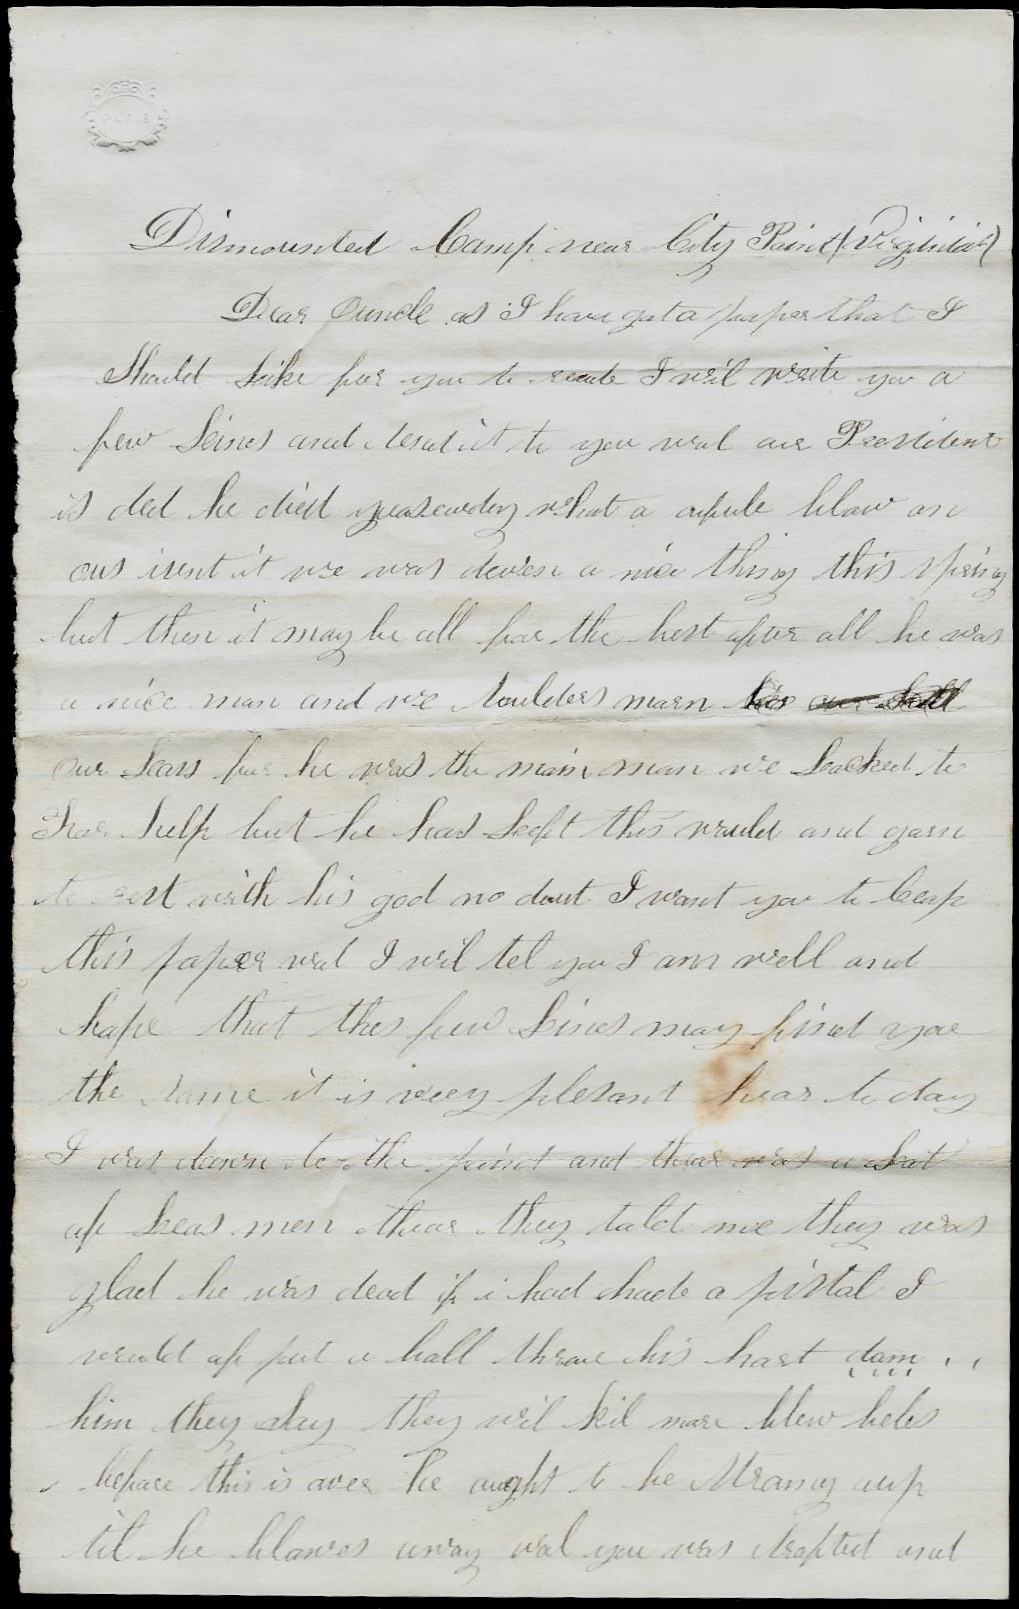 PARIS
Dismounted Camp near City Point (Virginia)
Dear Ouncle as I have gat a paper that I
Should Like for you to reade I wil write you a
few Leines and send it to you wal our President
is ded he died yeasterday what a blow on
ous isent it we was a nice thing this spring
but then it may be all for the best after all he was
a nice man and we soulders marn his our
our Loss for he was the main man we Loocked to
For help but he has Left this would and garn
to rest with his god no dout I want you to Ceap
this papeer wal I wil tel you I am well and
hape that thes few Leines may find you
the same it is veery plesant hear to day
I was down to the point and thear was a Lot
of seas men thear they tald me they was
glad he was dead if i had hade a pistal I
would of put a ball throue his hart dam
him they say they wil kil mare blew beles
before this is over he aught to be strang oup
til he blawes away wal you was drafted and